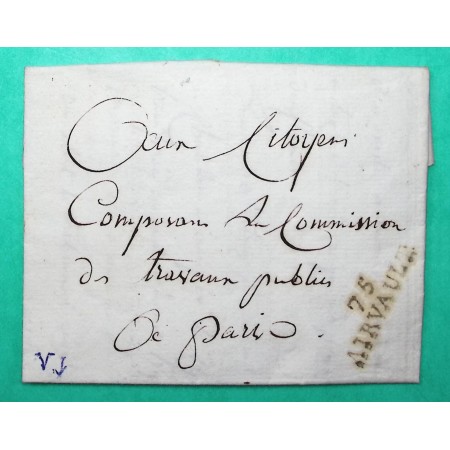 Aux Citoyens
Composans La Commission
des travaux publics
A paris
75
AIRVAULT